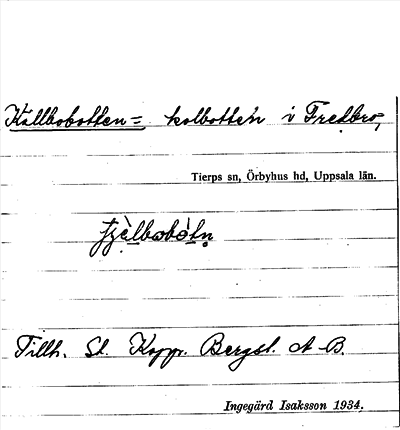 Källbobotten = kolbotten i Fredbro,
Tierps sn, Örbyhus hd, Uppsala län.
Tillh. St. Koppr. Bergsl. A-B.
Ingegärd Isaksson 1934.